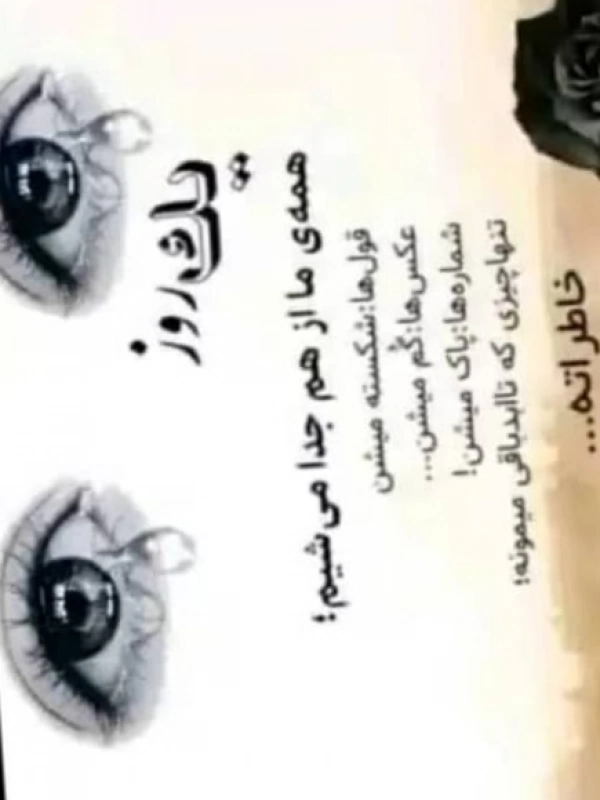 یک روز
همه‌ی ما از هم جدا می‌شیم؛
قول‌ها:شکسته میشن
عکس‌ها:گُم میشن...
شماره‌ها:پاک میشن!
تنهاچیزی که تاابدباقی میمونه؛
خاطراته...